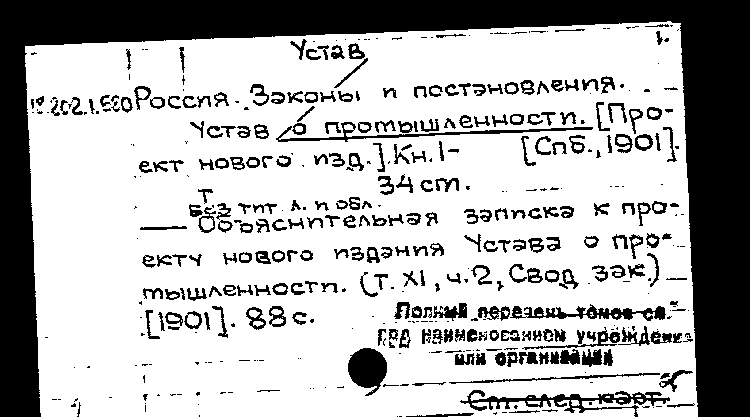 Устав
1.
18.202.1.580 Россия. Законы и постановления.
Устав о промышленности. [Про-
ект нового изд.] Кн. I- [Спб., 1901].
34 см.
Без тит. л. и обл.
— Объяснительная записка к про-
екту нового издания Устава о про-
мышленности. (Т. XI, ч. 2, Свод зак.)
[1901]. 88 с.
Полный перечень томов см.
под наименованием учреждения
или организации
См. след. карт.